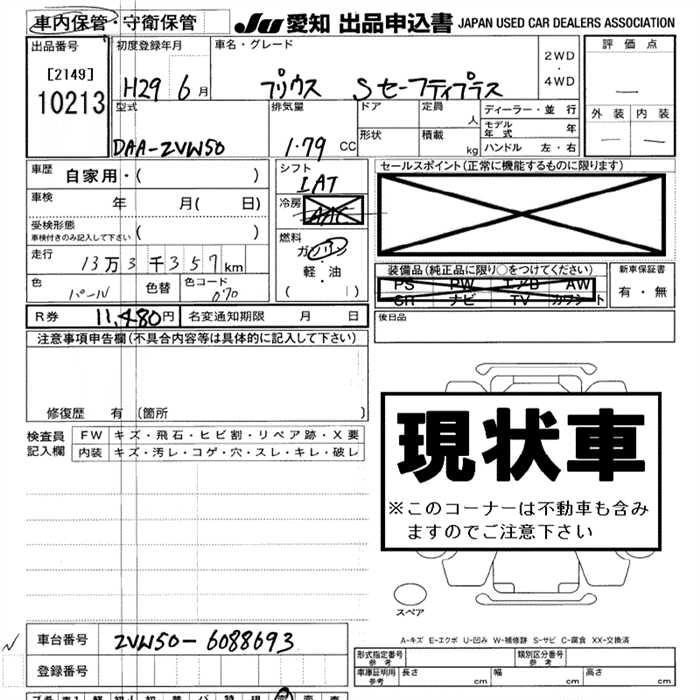 車内保管・守衛保管
JU愛知 出品申込書 JAPAN USED CAR DEALERS ASSOCIATION
出品番号
[2149]
10213
初度登録年月
H29 6月
車名・グレード
プリウス Sセーフティプラス
2WD
・
4WD
評価点
—
外装 内装
— —
型式
DAA-ZVW50
排気量
1.79 CC
ドア
定員
人
形状
積載
kg
ディーラー・並行
モデル年式 年
ハンドル 左・右
車歴 自家用・( )
車検 年 月( 日)
受検形態
車検付きのみ記入して下さい ( )
走行
13万3千357km
色
パール
色替
色コード
070
シフト
IAT
冷房
AAC
燃料
ガソリン
・
軽・油
( )
セールスポイント(正常に機能するものに限ります)
装備品(純正品に限り○をつけてください)
PS PW エアB AW
SR ナビ TV カワシート
新車保証書
有・無
後日品
R券 11,480円 名変通知期限 月 日
注意事項申告欄(不具合内容等は具体的に記入して下さい)
修復歴 有 (箇所 )
検査員
記入欄
FW キズ・飛石・ヒビ割・リペア跡・X要
内装 キズ・汚レ・コゲ・穴・スレ・キレ・破レ
現状車
※このコーナーは不動車も含み
ますのでご注意下さい
スペア
A-キズ E-エクボ U-凹み W-補修跡 S-サビ C-腐食 XX-交換済
車台番号 ZVW50-6088693
登録番号
形式指定番号
参考
類別区分番号
参考
車庫証明用
参考
長さ cm 幅 cm 高さ cm